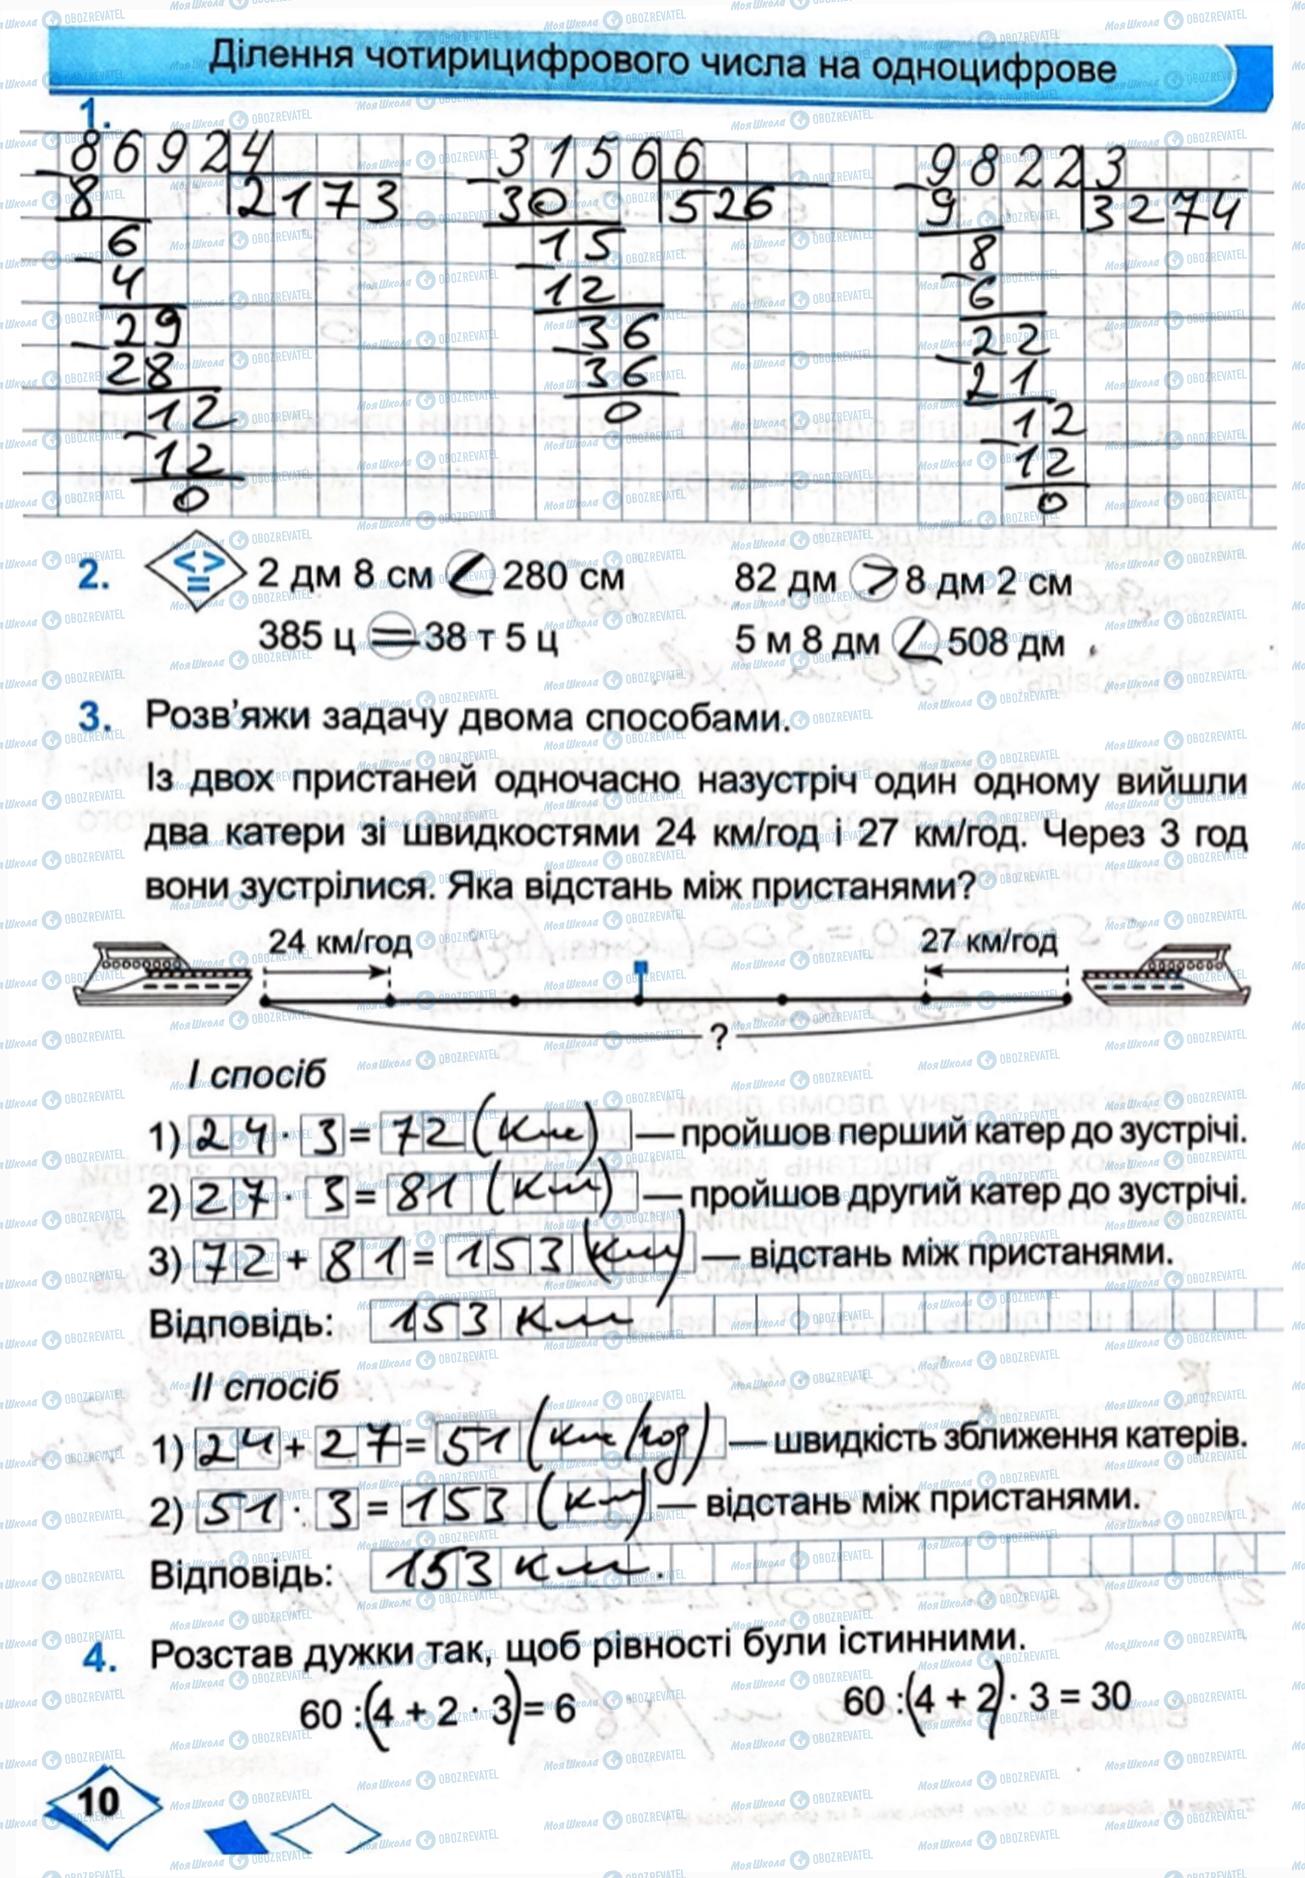 Ділення чотирицифрового числа на одноцифрове
1.
8692 4   3156 6   9822 3
8 2173   30 526   9 3274
6   15   8
4   12   6
29   36   22
28   36   21
12   0   12
12   12
0   0
2. < > = 2 дм 8 см < 280 см   82 дм > 8 дм 2 см
385 ц = 38 т 5 ц   5 м 8 дм < 508 дм
3. Розв'яжи задачу двома способами.
Із двох пристаней одночасно назустріч один одному вийшли
два катери зі швидкостями 24 км/год і 27 км/год. Через 3 год
вони зустрілися. Яка відстань між пристанями?
24 км/год   27 км/год
?
І спосіб
1) 24 · 3 = 72 (км) — пройшов перший катер до зустрічі.
2) 27 · 3 = 81 (км) — пройшов другий катер до зустрічі.
3) 72 + 81 = 153 (км) — відстань між пристанями.
Відповідь: 153 км
ІІ спосіб
1) 24 + 27 = 51 (км/год) — швидкість зближення катерів.
2) 51 · 3 = 153 (км) — відстань між пристанями.
Відповідь: 153 км.
4. Розстав дужки так, щоб рівності були істинними.
60 : (4 + 2 · 3) = 6   60 : (4 + 2) · 3 = 30
10
МояШкола OBOZREVATEL